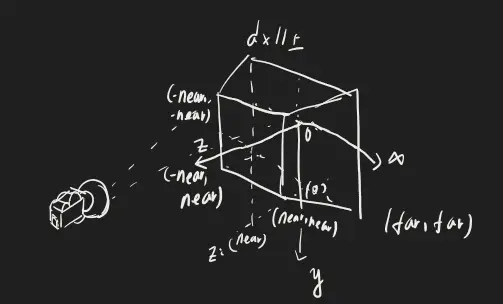 (-near,
-near)
z
0
∞
(-near,
near)
(0)
(near, near)
(far, far)
z: (near)
y